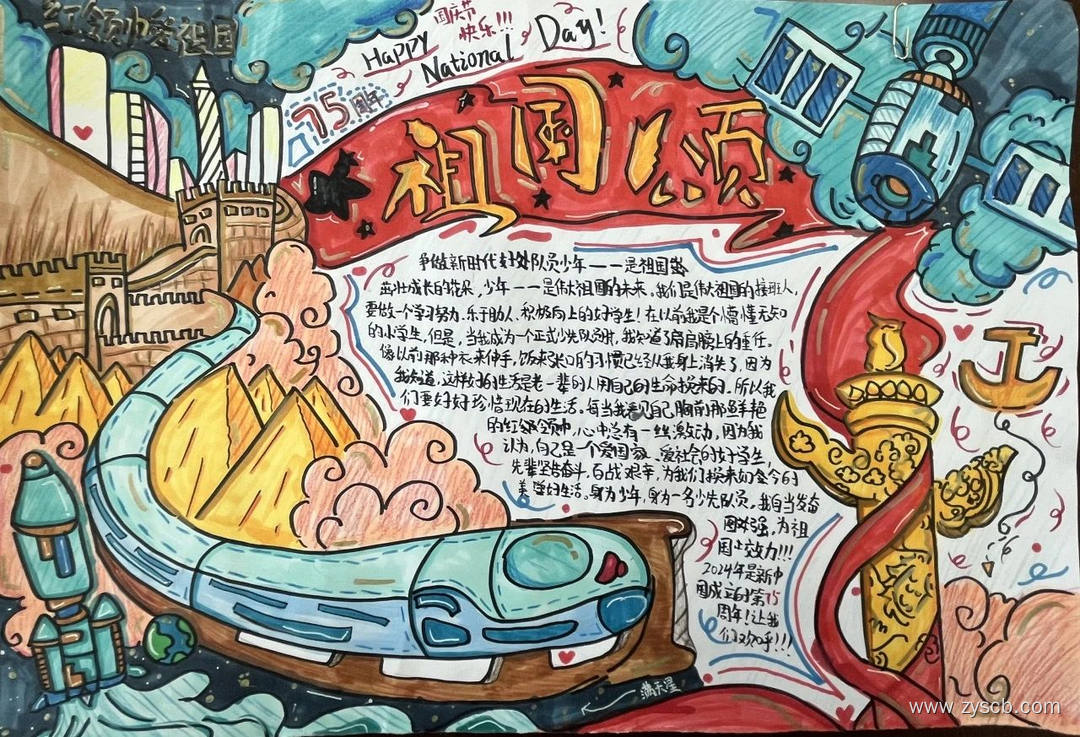 红领巾爱祖国
国庆节
快乐!!!
Happy
National Day!
75周年
祖国颂
争做新时代好队员少年——是祖国
茁壮成长的花朵，少年——是伟大祖国的未来。我们是伟大祖国的接班人，
要做一个学习努力、乐于助人、积极向上的好学生！在以前我是个懵懂无知
的小学生，但是，当我成为一个正式少先队员时，我知道了肩膀上的重任。
像以前那种衣来伸手，饭来张口的习惯已经从我身上消失了，因为
我知道，这样好的生活是老一辈的人用自己的生命换来的，所以我
们要好好珍惜现在的生活。每当我看见自己胸前那鲜艳
的红领巾，心中总有一丝激动，因为我
认为，自己是一个爱国家、爱社会的好学生，
先辈坚苦奋斗、百战艰辛，为我们换来如今的
美好生活。身为少年，身为一名少先队员，我自当发奋
图强，为祖
国效力!!!
2024年是新中
国成立的第75
周年！让我
们欢呼!!!
满天星
www.zyscb.com